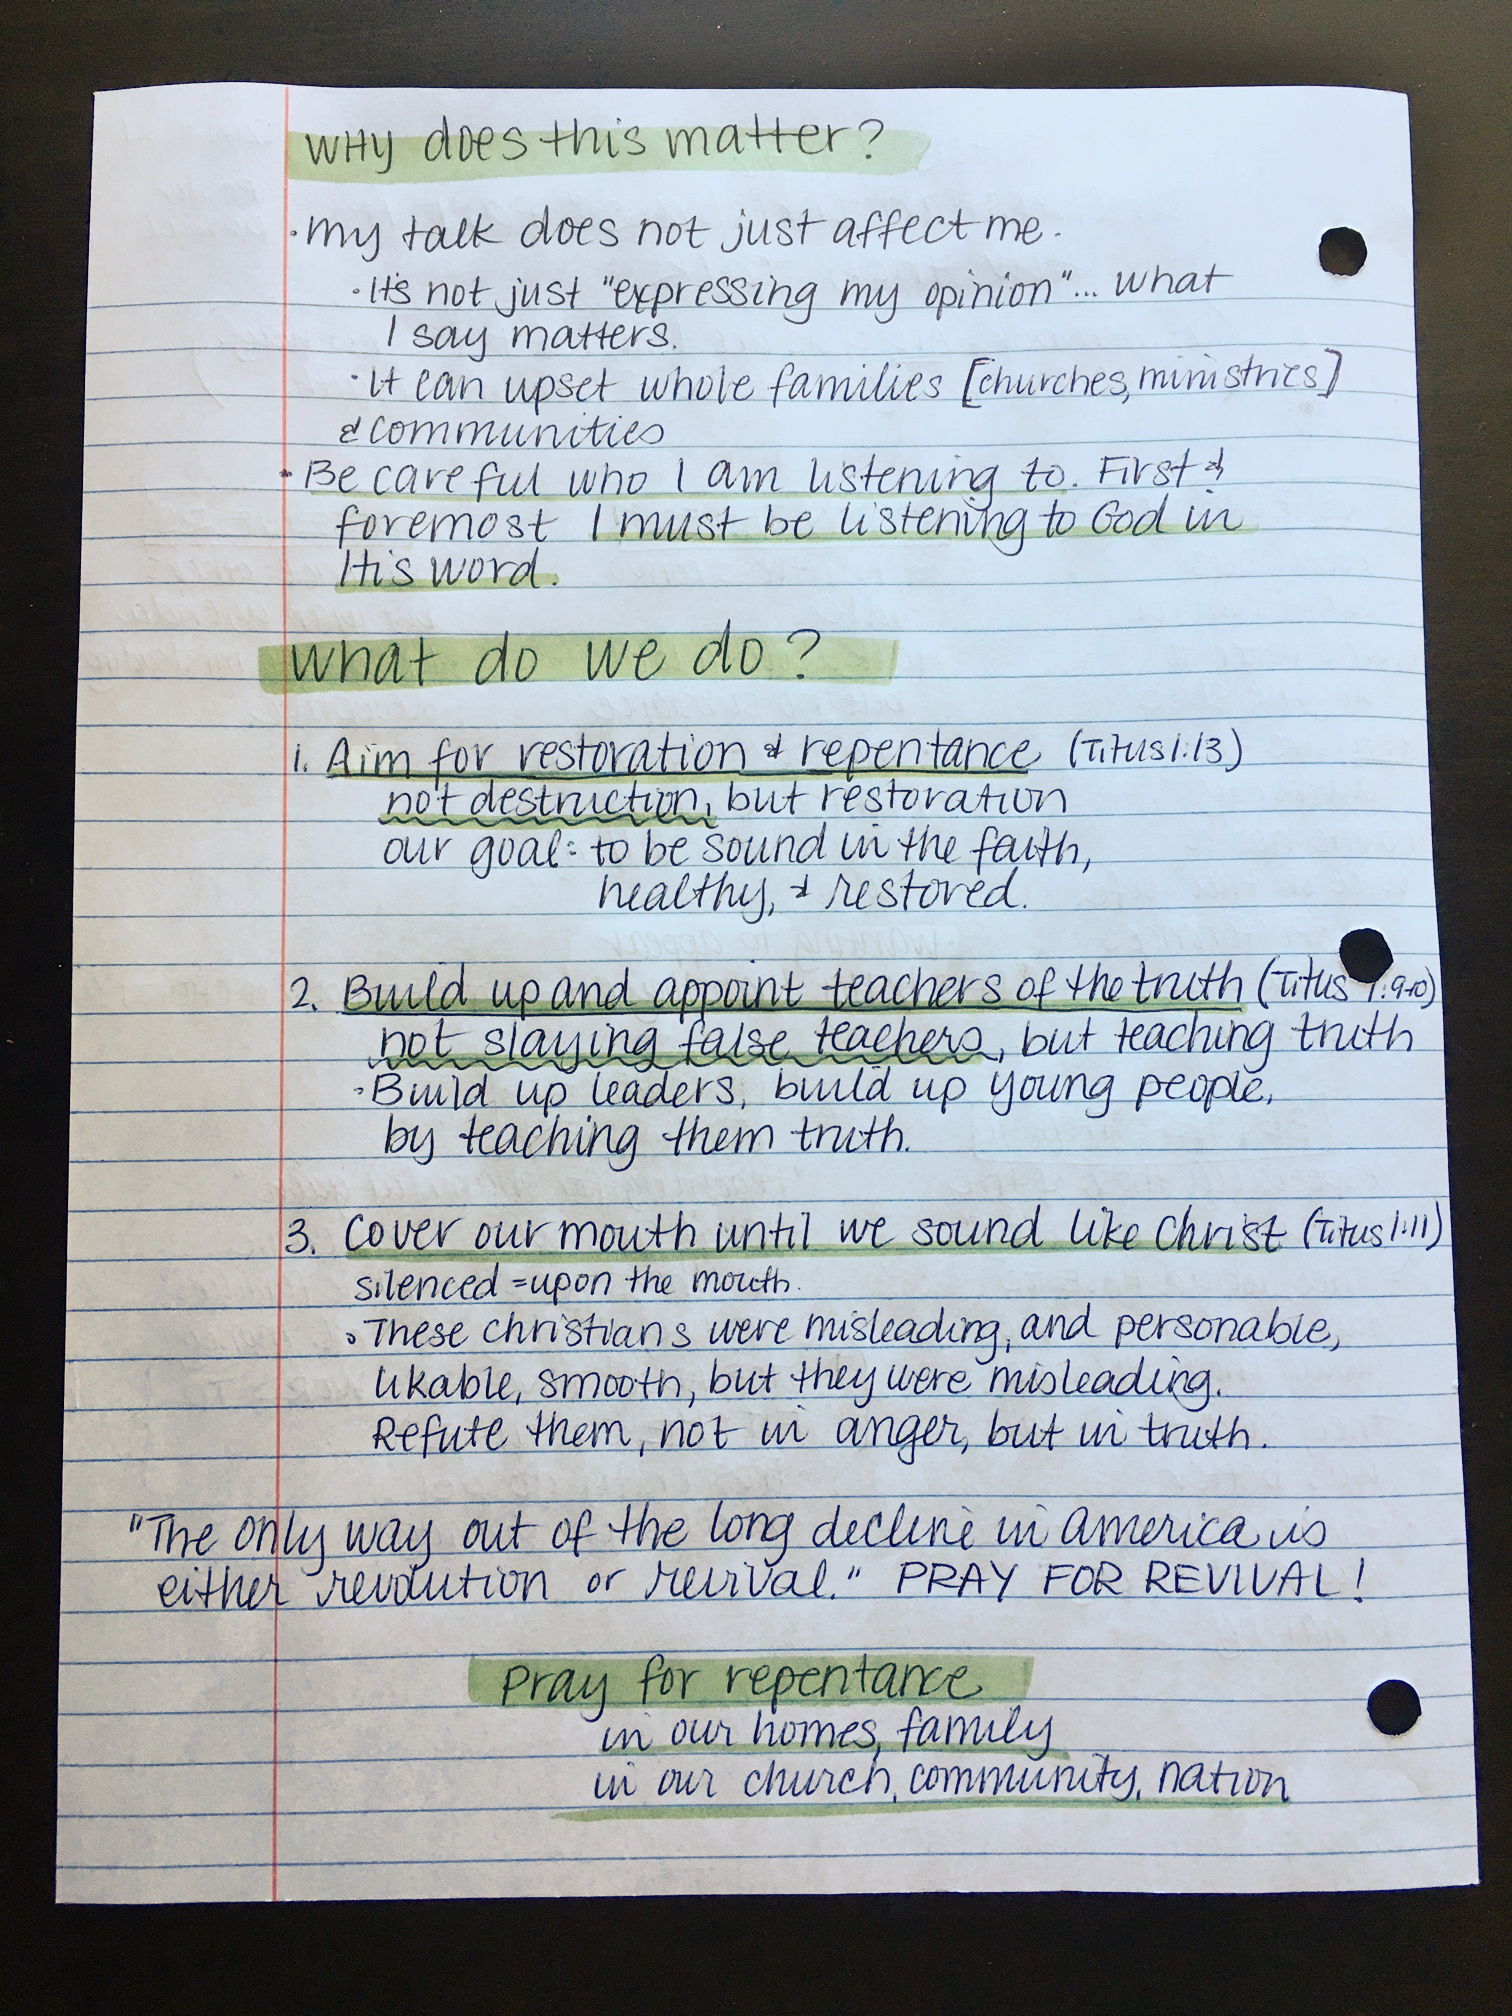 WHY does this matter?
· my talk does not just affect me.
· It's not just "expressing my opinion"... what
I say matters.
· It can upset whole families [churches, ministries]
& communities
· Be careful who I am listening to. First &
foremost I must be listening to God in
His word.
What do we do?
1. Aim for restoration & repentance (Titus 1:13)
not destruction, but restoration
our goal: to be sound in the faith,
healthy, & restored.
2. Build up and appoint teachers of the truth (Titus 1:9-10)
not slaying false teachers, but teaching truth
· Build up leaders, build up young people,
by teaching them truth.
3. Cover our mouth until we sound like Christ (Titus 1:11)
silenced = upon the mouth.
• These christians were misleading, and personable,
likable, smooth, but they were misleading.
Refute them, not in anger, but in truth.
"The only way out of the long decline in America is
either revolution or revival." PRAY FOR REVIVAL!
Pray for repentance
in our homes, family
in our church, community, nation